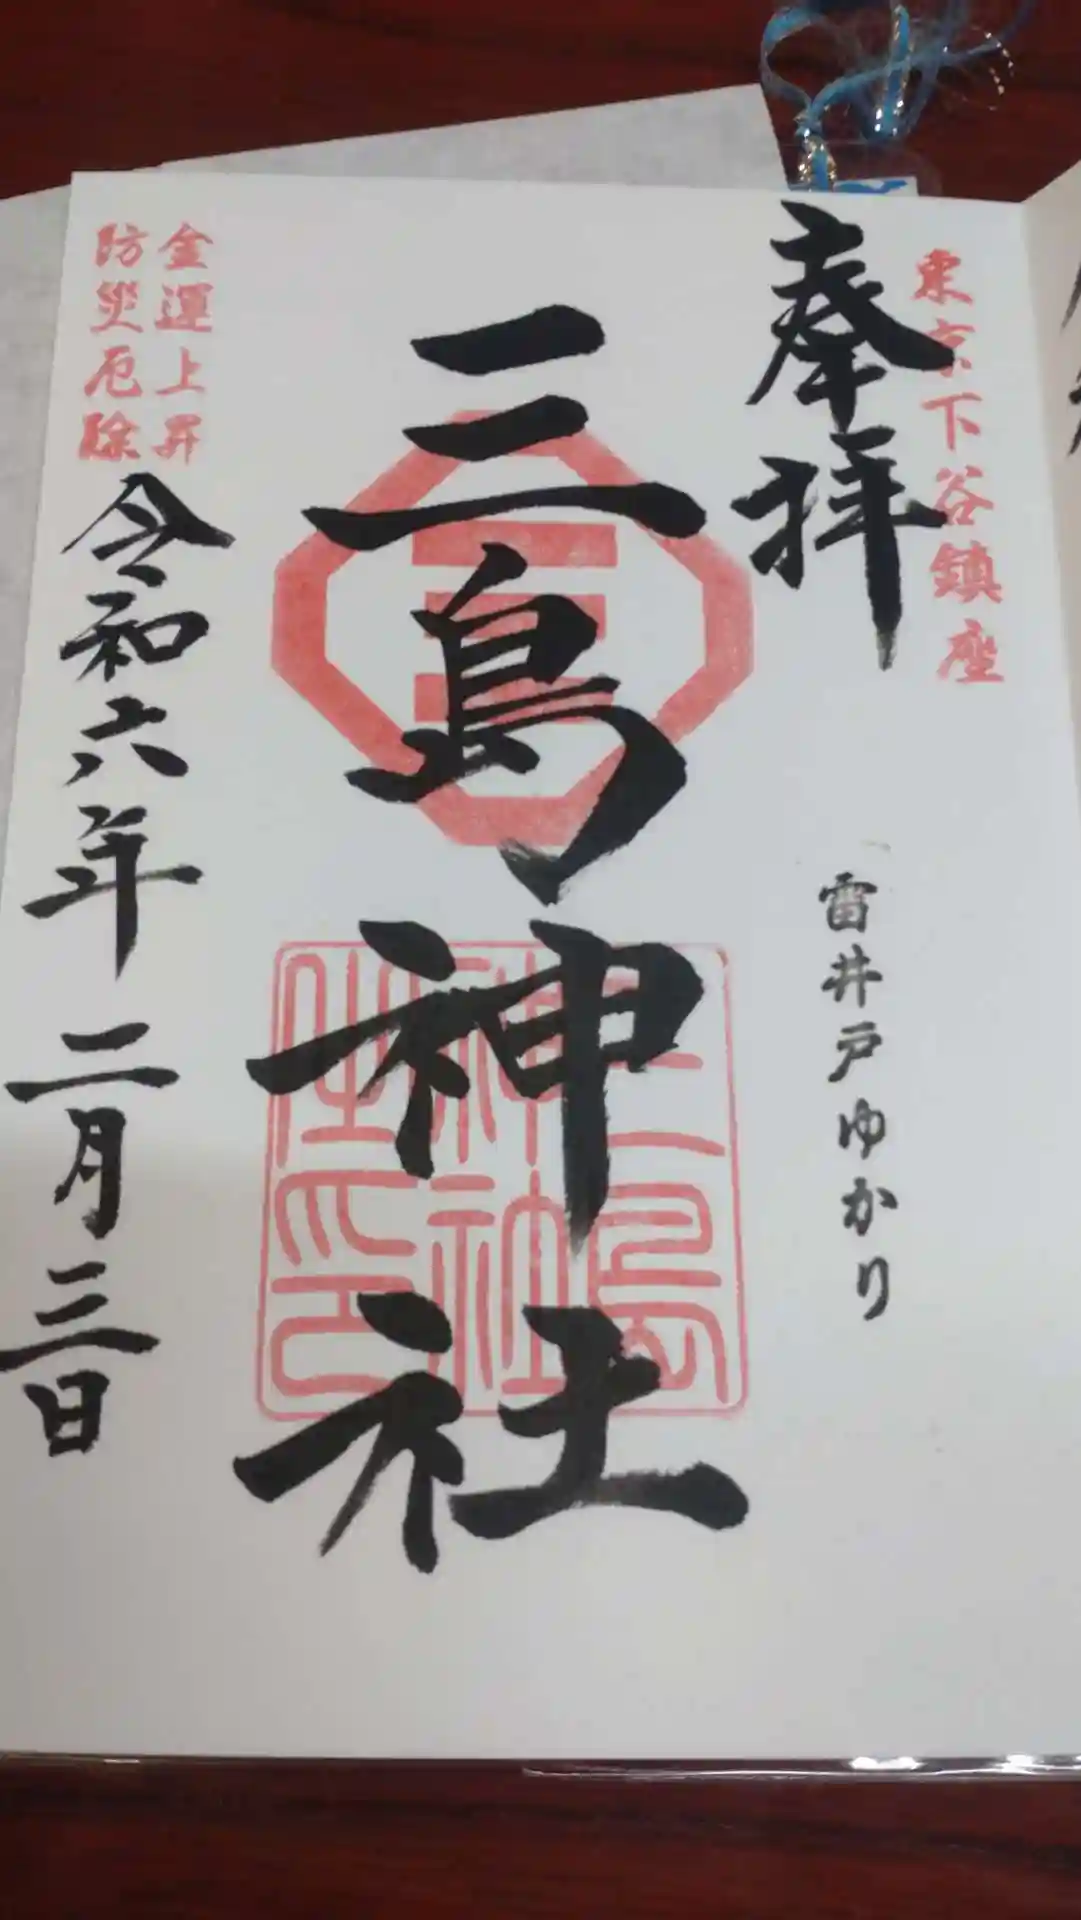 東京下谷鎮座
奉拝
雷井戸ゆかり
三島神社
三島
神社
金運上昇
防災厄除
令和六年二月三日